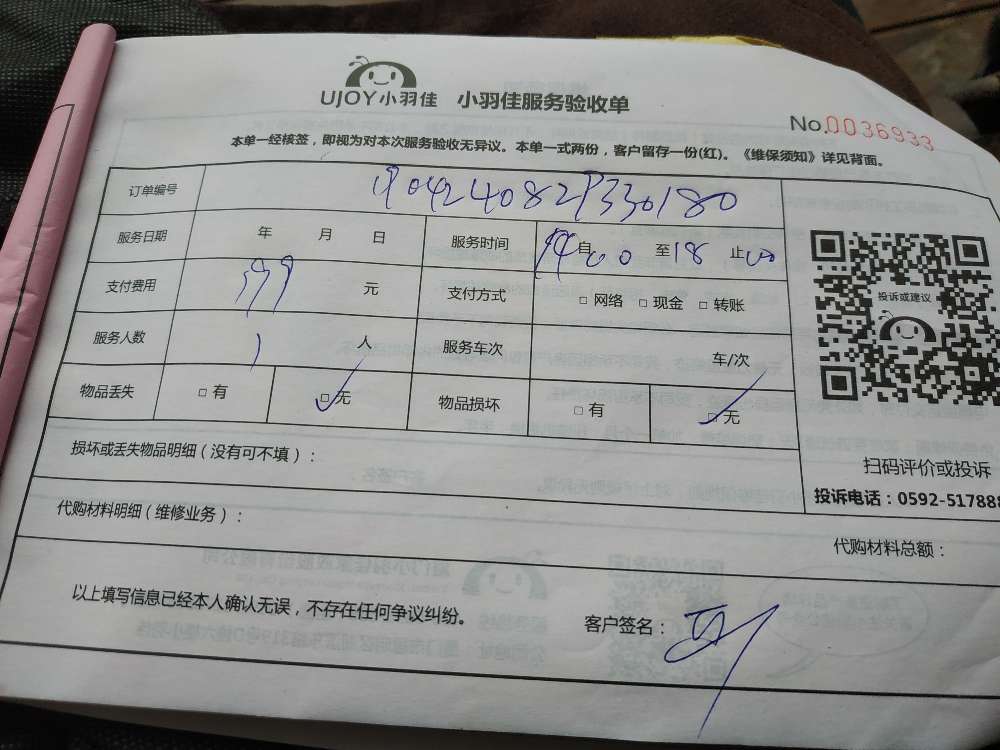 UJOY小羽佳 小羽佳服务验收单
No.0036933
本单一经核签，即视为对本次服务验收无异议。本单一式两份，客户留存一份(红)。《维保须知》详见背面。
订单编号 1904240829330180
服务日期 年 月 日 服务时间 自 00 至18 止
支付费用 199 元 支付方式 □ 网络 □ 现金 □ 转账
服务人数 1 人 服务车次 车/次
物品丢失 □ 有 □ 无 物品损坏 □ 有 □ 无
投诉或建议
损坏或丢失物品明细（没有可不填）：
扫码评价或投诉
投诉电话：0592-517888
代购材料明细（维修业务）：
代购材料总额：
以上填写信息已经本人确认无误，不存在任何争议纠纷。
客户签名：